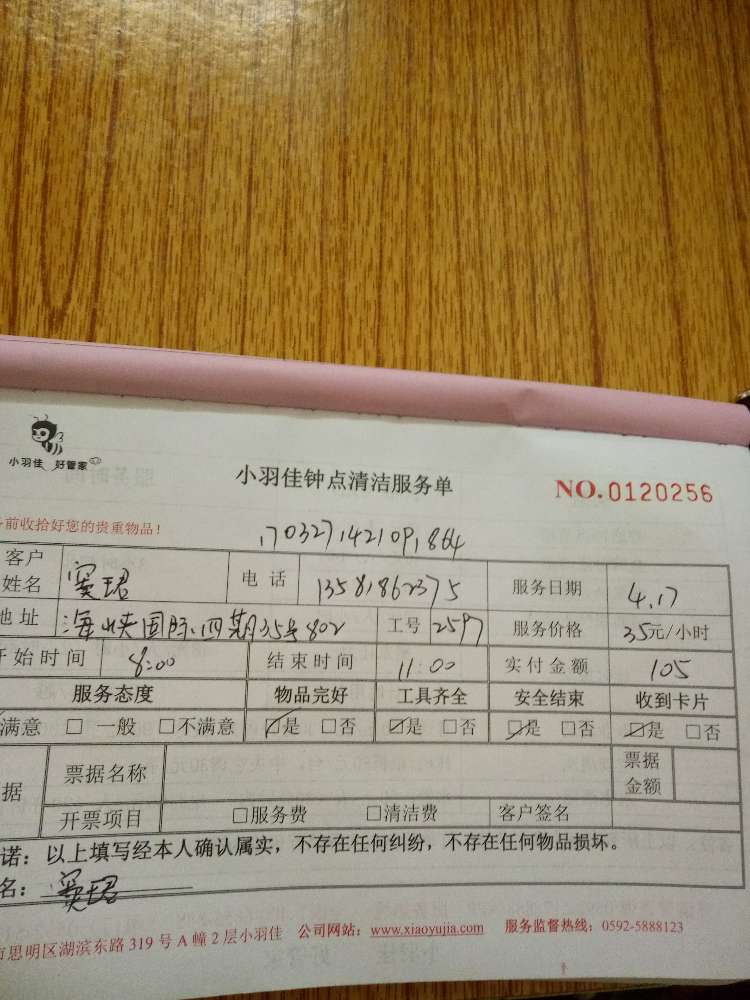 小羽佳 好管家
小羽佳钟点清洁服务单
NO.0120256
前收拾好您的贵重物品!
170327142109,864
客户姓名 窦珺 电话 13581862375 服务日期 4.17
地址 海峡国际四期35号802 工号 2597 服务价格 35元/小时
开始时间 8:00 结束时间 11:00 实付金额 105
服务态度 物品完好 工具齐全 安全结束 收到卡片
满意 □ 一般 □不满意 ☑是 □否 ☑是 □否 ☑是 □否 ☑是 □否
据 票据名称 票据金额
开票项目 □服务费 □清洁费 客户签名
诺:以上填写经本人确认属实,不存在任何纠纷,不存在任何物品损坏。
名:窦珺
市思明区湖滨东路319号A幢2层小羽佳 公司网站:www.xiaoyujia.com 服务监督热线:0592-5888123